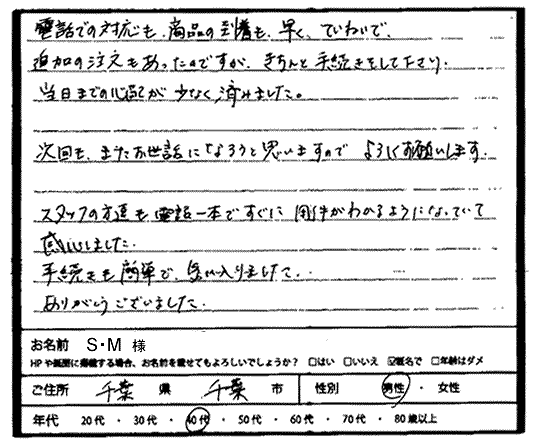 電話での対応も、商品の到着も、早く、ていねいで、
追加の注文もあったのですが、きちんと手続きをして下さり、
当日までの心配が少なく済みました。
次回も、またお世話になろうと思いますので よろしくお願いします。
スタッフの方達も電話一本ですぐに用件がわかるようになっていて
感心しました。
手続きも簡単で、気に入りました。
ありがとうございました。
お名前 S・M 様
HPや紙面に掲載する場合、お名前を載せてもよろしいでしょうか? □はい □いいえ ☑匿名で □年齢はダメ
ご住所 千葉 県 千葉 市 性別 男性 ・ 女性
年代 20代 ・ 30代 ・ 40代 ・ 50代 ・ 60代 ・ 70代 ・ 80歳以上